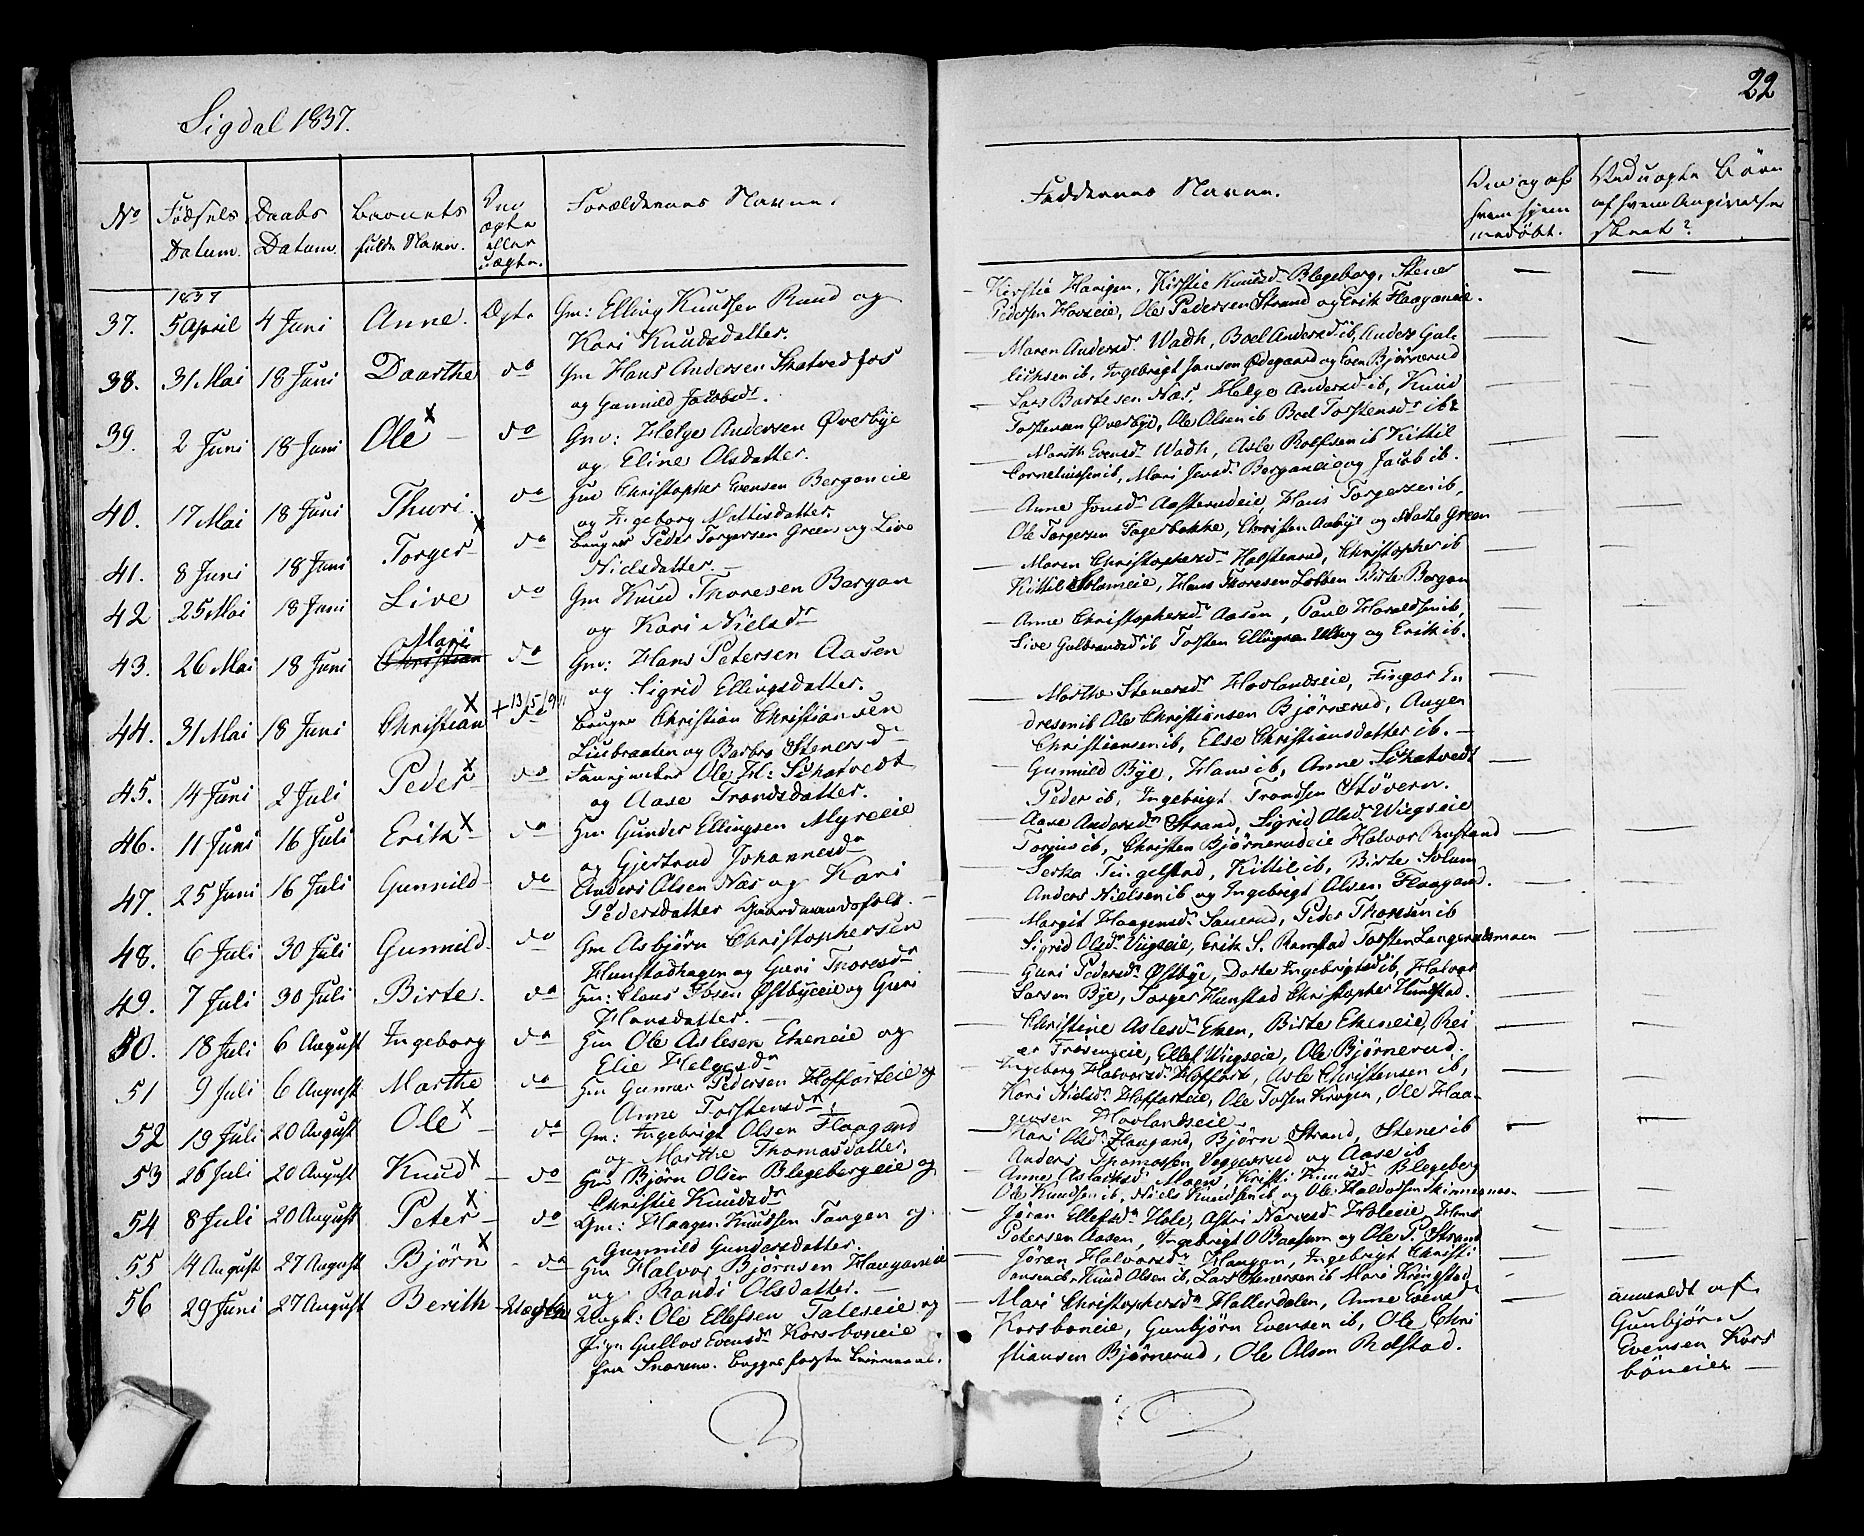 22
Sigdal 1837.
No
Fødsels Datum.
Daabs Datum.
Barnets fulde Navn.
Om ægte eller uægte.
Forældrenes Navne.
Faddernes Navne.
Om og af hvem hjemmedøbt.
Ved uægte Børn af hvem Angivelse skeet?
1837
37. 5 April 4 Juni Anne. Ægte Gm: Elling Knudsen Ruud og
Kari Knudsdatter.
Kirstie Haugen, Kirstie Knudsd. Blegeberg, Stener
Pedersen Hovseie, Ole Pedersen Strand og Erik Flaaganeie.
38. 31 Mai 18 Juni Daarthe do Gm Hans Andersen Skatvedfos
og Gunnild Jacobsdr.
Maren Andersd. Wadh, Boel Andersd. ib, Anders Gul-
lichsen ib, Ingebrigt Jansen Ødegaard og Even Bjørnerud
39. 2 Juni 18 Juni Ole x do Gm: Helge Andersen Øverbye
og Eline Olsdatter.
Lars Bartesen Næs, Helge Andersd ib, Knud
Torstensen Øverbye, Ole Olsen ib Boel Torstensdr ib
40. 17 Mai 18 Juni Thuri. do Hm Christopher Evensen Berganeie
og Ingeborg Mattisdatter.
Marith Evensdr Wadh, Asle Rolfsen ib Kittil
Corneliussen ib, Mari Jensd. Berganeie og Jacob ib.
41. 8 Juni 18 Juni Torger x do Bruger Peder Torgersen Green og Live
Nielsdatter.
Anne Jonsd. Aasterudeie, Hans Torgersen ib,
Ole Torgersen Fagerbakke, Christen Aabye og Marte Green
42 25 Mai 18 Juni Live do Gm Knud Thoresen Bergan
og Kari Nielsdr
Maren Christophersdr Halstenrud, Christopher ib
Kittil Solumeie, Hans Thoresen Lobben Birte Bergan
43. 26 Mai 18 Juni Mari Christian do Gm: Hans Petersen Aasen
og Sigrid Ellingsdatter.
Anne Christophersdr Aasen, Paul Haraldsen ib,
Live Gulbrandsd ib Torsten Ellingsen Ulberg og Erik ib.
44. 31 Mai 18 Juni Christian x do Bruger Christian Christiansen
Liusbraaten og Barbro Stenersdr
Marthe Stenersdr Hovlandseie, Fingar En
dresen ib Ole Christiansen Bjørnerud, Augen
Christiansen ib, Else Christiansdatter ib.
45. 14 Juni 2 Juli Peder x do Ole H: Skatvedt
og Aase Trondsdatter.
Gunnild Bye, Hans ib, Anne Skatvedt
Peder ib, Ingebrigt Trondsen Støvern.
46. 11 Juni 16 Juli Erik x do Hm Gunder Ellingsen Myreeie
og Gjertrud Johannesdr
Aase Andersdr Strand, Sigrid Olsd. Wiigseie
Torgius ib, Christen Bjørnerudeie Halvor Ramstand
47. 25 Juni 16 Juli Gunnild do Anders Olsen Næs og Kari
Pedersdatter Gaardmandsfolk.
Bertha Tingelstad, Kittil ib, Birte Solum
Anders Nielsen ib og Ingebrigt Olsen Flaagand.
48. 6 Juli 30 Juli Gunnild do Gm Asbjørn Christophersen
Hunstadhagen og Guri Thoresdr
Margit Haagensd. Sauerud, Peder Thoresen ib
Sigrid Olsdr Viigseie, Erik S. Ramstad Torsten Langerudsmoen
49. 7 Juli 30 Juli Birte. do Hm: Claus Ibsen Østbyeeie og Guri
Hansdatter.
Guri Pedersdr Østbye, Dorte Ingebrigtsd ib, Halvor
Larsen Bye, Torger Hunstad Christopher Hunstad.
50. 18 Juli 6 August Ingeborg do Hm Ole Aslesen Ekeneie og
Elie Helgesdr
Christine Aslesdr Eken, Birte Ekeneie, Rei
er Frøsengeie, Ellef Wigseie, Ole Bjørnerud.
51 9 Juli 6 August Marthe do Hm Gunnar Pedersen Hoffarteie og
Anne Torstensdr.
Ingeborg Halvorsdr Hoffart, Asle Christensen ib,
Kari Nielsdr Hoffarteie, Ole Torsten Krogen, Ole Haa-
gensen Hovlandseie
52 19 Juli 20 August Ole x do Gm: Ingebrigt Olsen Flaagand
og Marthe Thomasdatter.
Kari Olsdr Flaagand, Bjørn Strand, Stener ib
Anders Thomassen Veggesrud og Aase ib
53 26 Juli 20 August Knud x do Hm Bjørn Olsen Blegebergeie og
Christie Knudsdr
Anne Moen, Kristi Knudsd Blegeberg
Ole Knudsen ib, Niels Knudsen ib og Ole Haldorsen Skinnesmoen
54 8 Juli 20 August Peter x do Gm: Haagen Knudsen Tangen og
Gunnild Gundersdatter.
Jøran Ellefsdr Hole, Astri Narvesdr Holeeie, Hans
Petersen Aasen, Ingebrigt O Baasum og Ole P. Strand
55 4 August 27 August Bjørn x do Hm Halvor Bjørnsen Haaganeie
og Randi Olsdatter.
Jøran Halvorsdr Haugan, Ingebrigt Christi
ansen ib Knud Olsen ib, Lars Stenersen ib Mari Kringstad
56 29 Juni 27 August Berith Uægte Ungk: Ole Ellefsen Taleseie og
Pige Gullov Evensdr Korsbøneie
fra Snarum. Begges første Leiermaal.
Mari Christophersdr Hallerdalen, Anne Evensdr
Korsboneie, Gunbjørn Evensen ib, Ole Chri
stiansen Bjørnerud, Ole Olsen Rolstad.
anmeldt af
Gunbjørn
Evensen Kors
bøneie